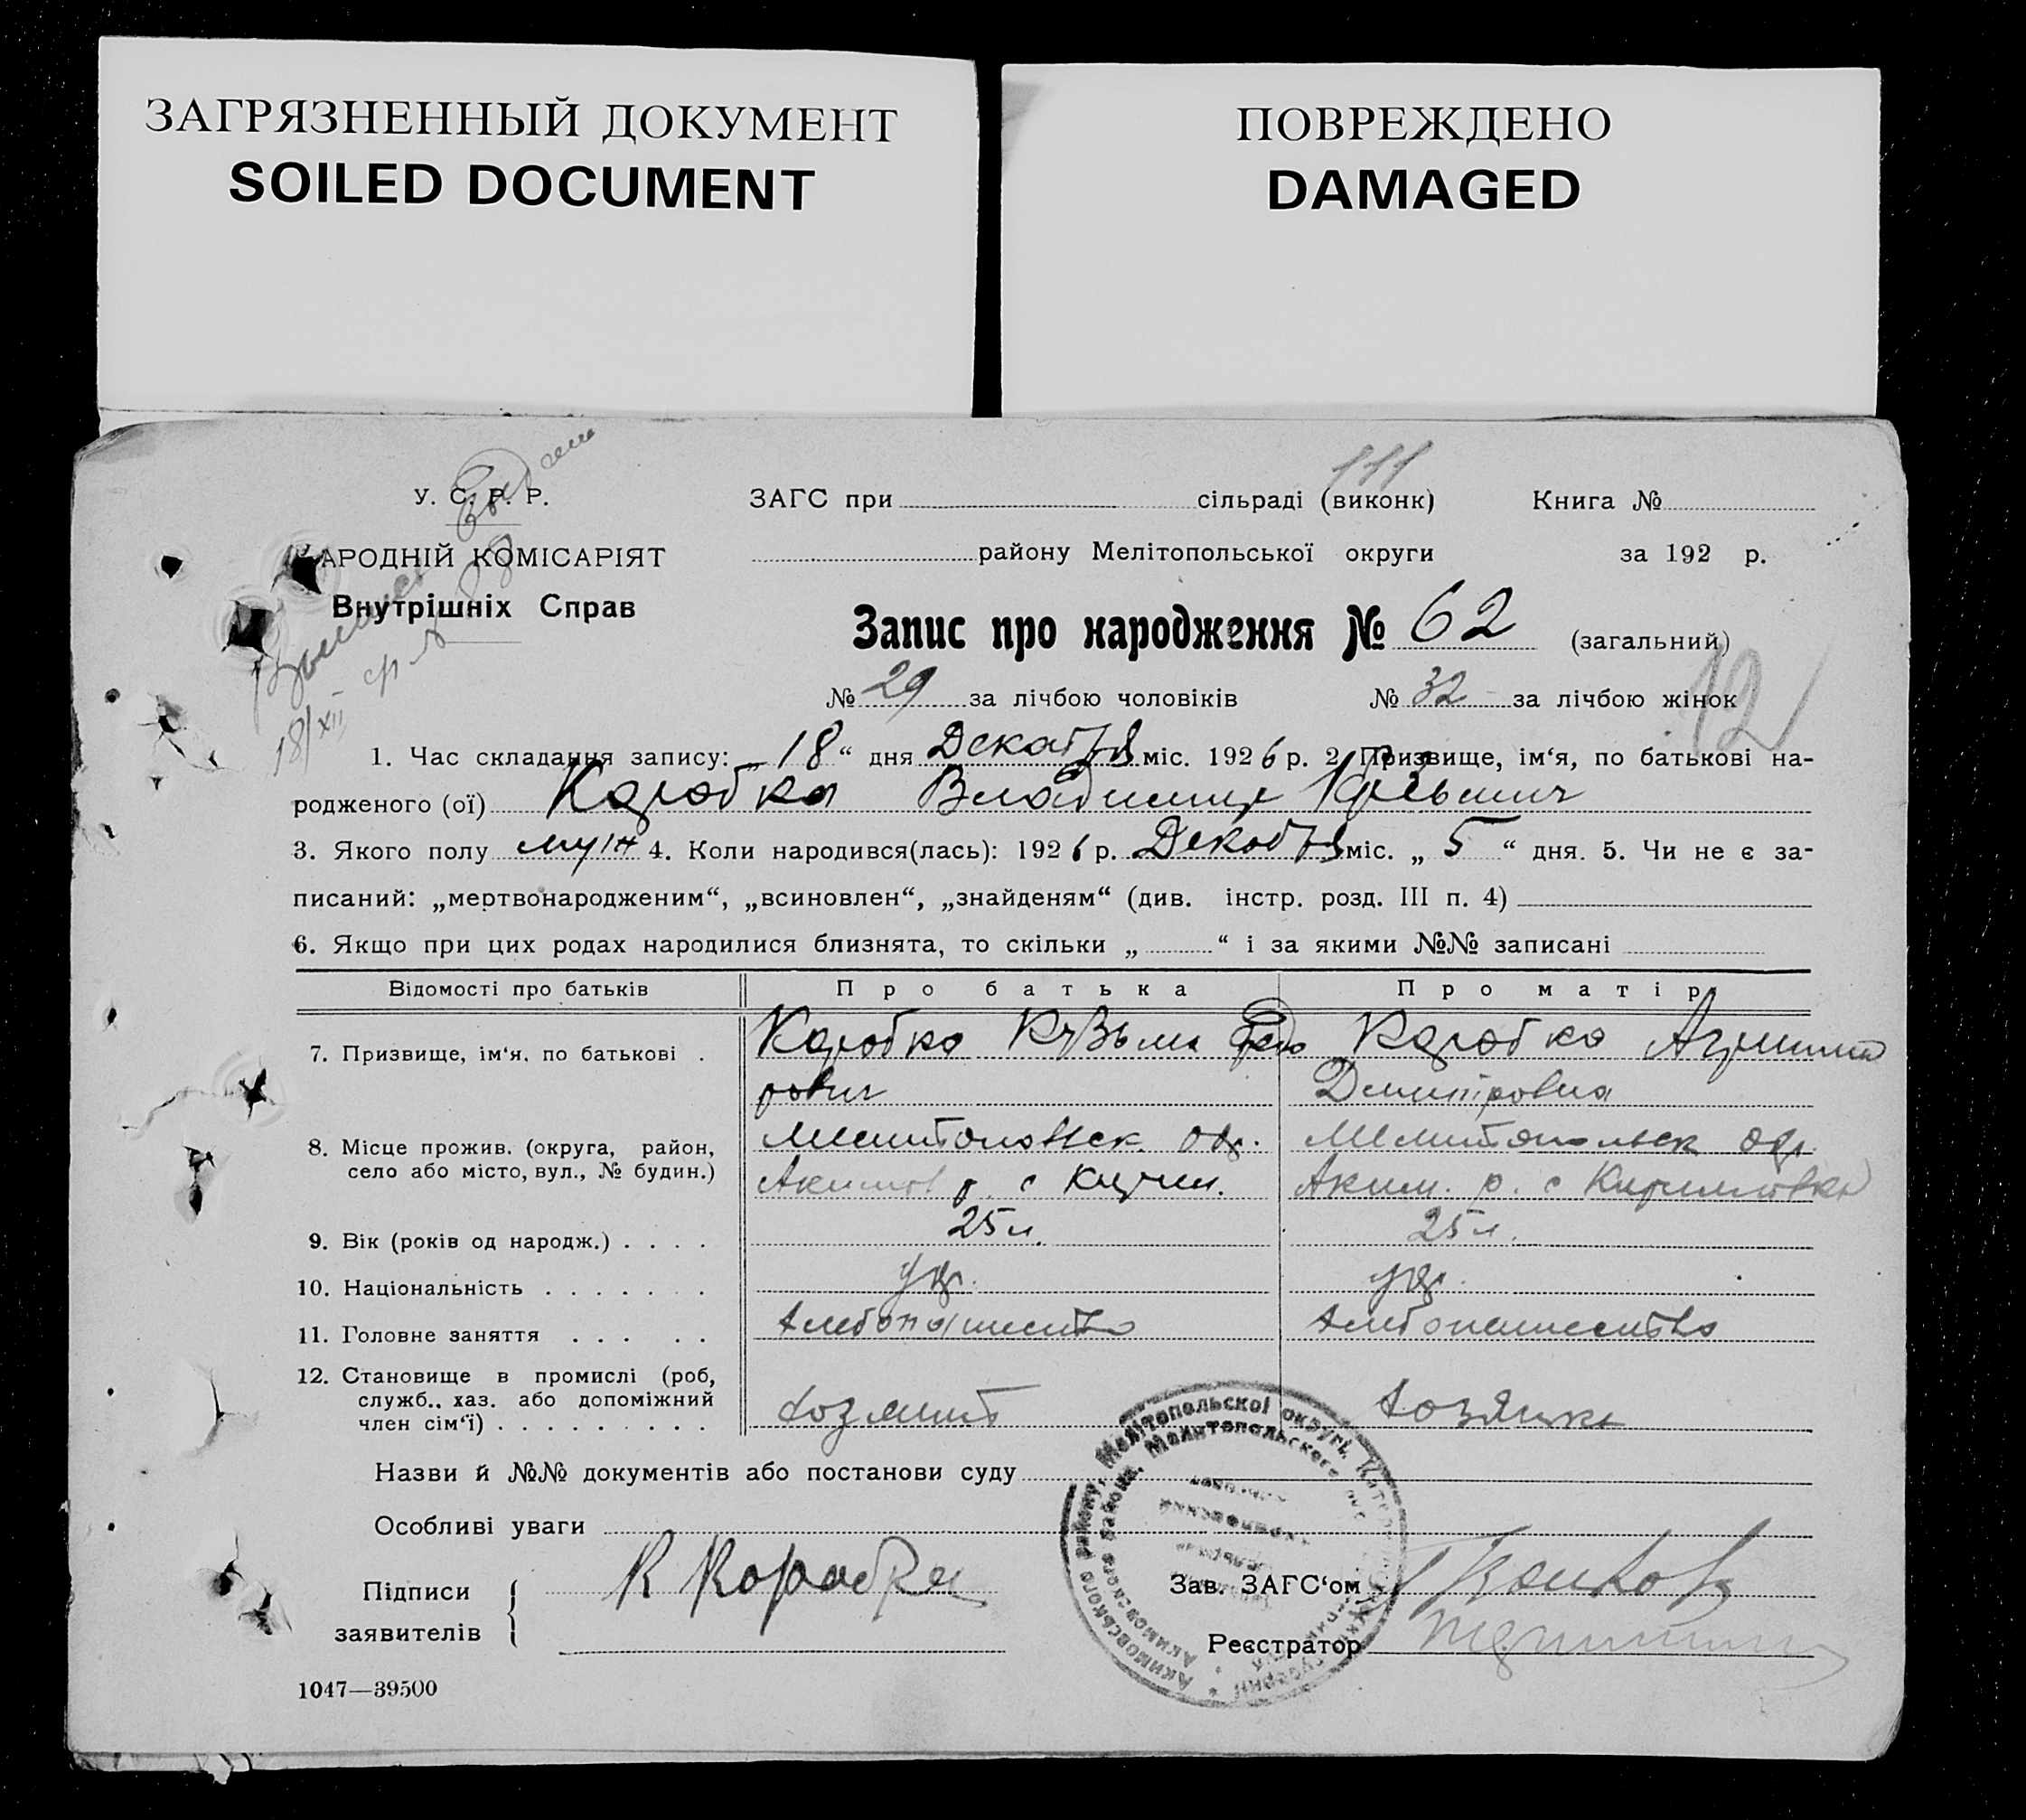 ЗАГРЯЗНЕННЫЙ ДОКУМЕНТ
SOILED DOCUMENT
ПОВРЕЖДЕНО
DAMAGED
111
У. С. Р. Р.
ЗАГС при сільраді (виконк) Книга №
АРОДНІЙ КОМІСАРІЯТ
району Мелітопольської округи за 192 р.
Внутрішніх Справ
Запис про народження № 62 (загальний)
№ 29 за лічбою чоловіків № 32 за лічбою жінок
18/XII
12
1. Час складання запису: „ 18 “ дня Декабря міс. 1926 р. 2. Призвище, ім‘я, по батькові на-
родженого (ої) Коробка Владимир Кузьмич
3. Якого полу муж 4. Коли народився(лась): 1926 р. Декабря міс. „ 5 “ дня. 5. Чи не є за-
писаний: „мертвонародженим“, „всиновлен“, „знайденям“ (див. інстр. розд. III п. 4)
6. Якщо при цих родах народилися близнята, то скільки „ “ і за якими №№ записані
Відомості про батьків Про батька Про матір
7. Призвище, ім‘я, по батькові . Коробка Кузьма Федо Коробка
рович Димитровна
8. Місце прожив. (округа, район, Мелитопольск. окр. Мелитопольск окр.
село або місто, вул., № будин.) Акимов р. с Кирил. Аким. р. с Кирилловка
9. Вік (років од народж.) . . . . 25 л. 25 л.
10. Національність . . . . . . . укр. укр.
11. Головне заняття . . . . . хлебопашество хлебопашество
12. Становище в промислі (роб,
служб., хаз. або допоміжний
член сім‘ї) . . . . . . . . . хозяин хозяйка
Назви й №№ документів або постанови суду
Особливі уваги
Підписи К Коробка Зав. ЗАГС‘ом
заявителів Реєстратор
Акимовського району, Мелітопольскоі округі,
Акимовского района, Мелитопольского
1047—39500